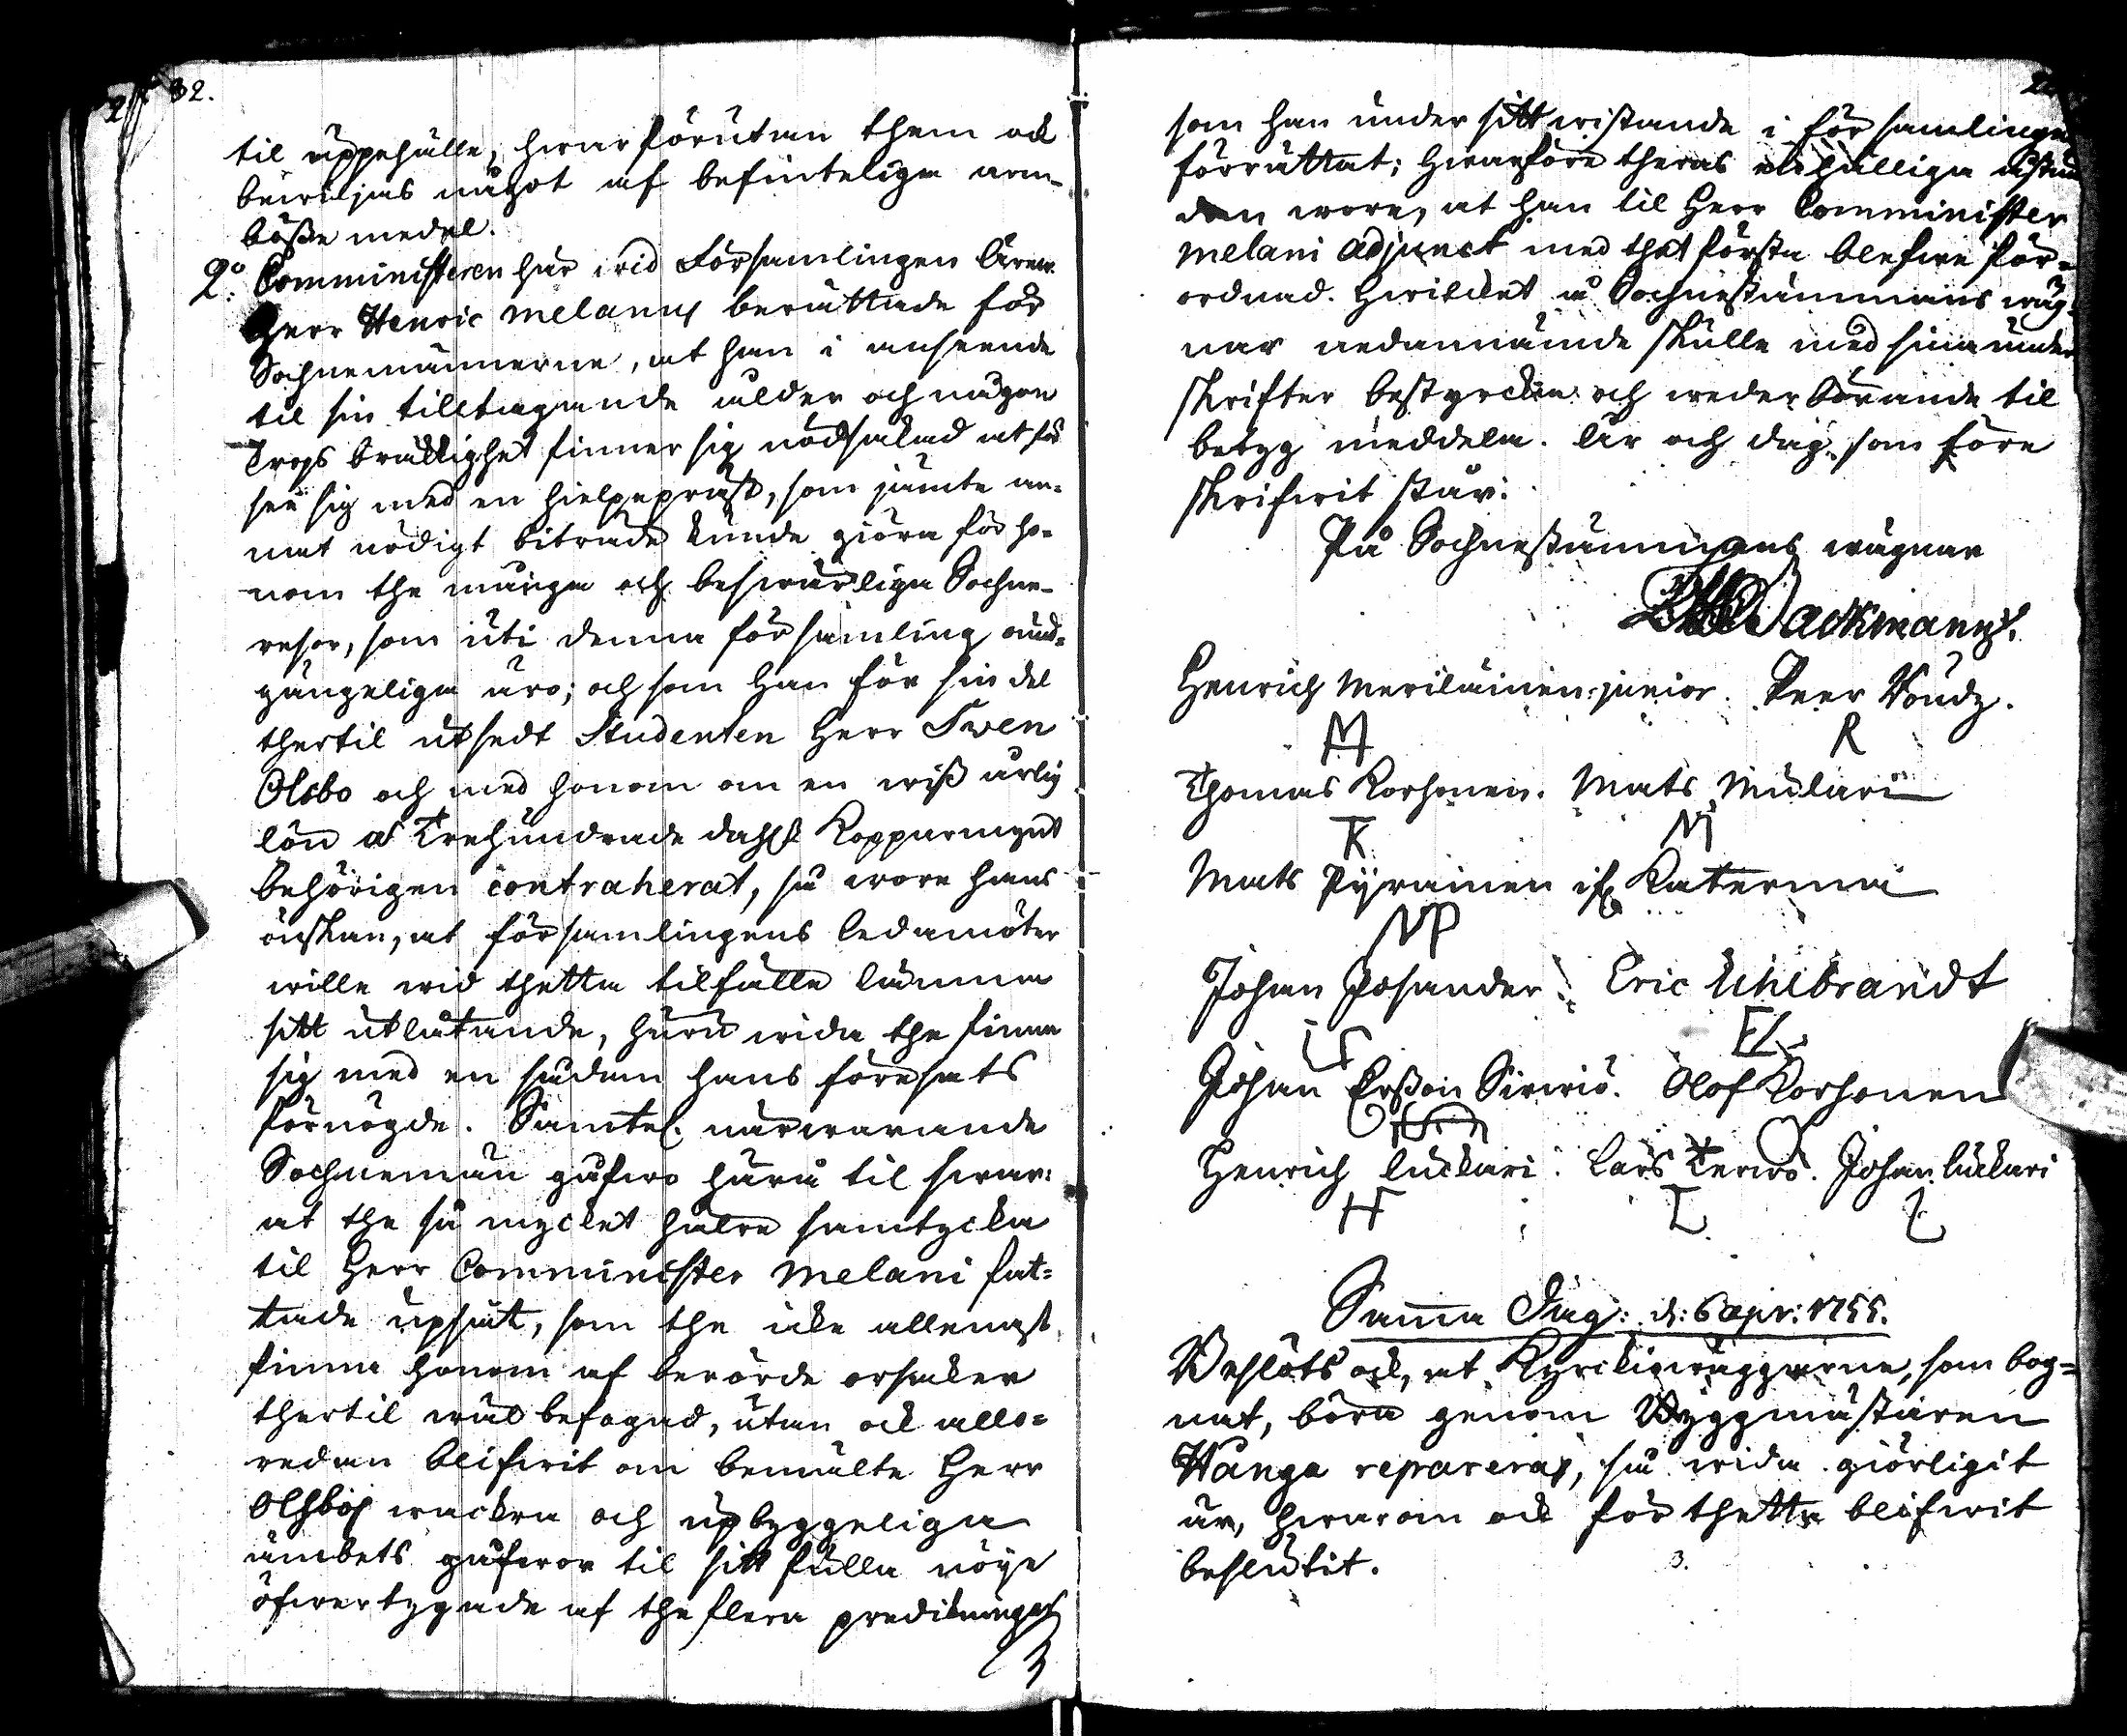 32.
til uppehälle, hwarförutan them ock
bewiljas något af befintelige arm-
bösse medel.
2:o Comministeren här wid Församlingen
Herr Henric Melanus berättade för
Sochnemännerne, at han i anseende
til sin tilltagande ålder och någon
Crops bräcklighet finner sig nödsakad at för
see sig med en hielpepräst, som jämte an-
nat nödigt biträde kunde giöra för ho-
nom the många och beswärliga Sochne-
resor, som uti denna församling
gängeliga äro; och som han för sin del
thertil utsedt Studenten Herr Swen
Olsbo och med honom om en wiss årlig
lön af Trehundrade dahlr Kopparmynt
behörigen contraherat, så wore hans
önskan, at församlingens ledamöter
wille wid thetta tilfälle lämna
sitt utlåtande, huru wida the finna
sig med en sådan hans föresats
förnögde. Samtel. närwarande
Sochnemän gåfwo härå til swar:
at the så mycket hälre samtycka
til Herr Comminister Melani fat-
tade upsåt, som the icke allenast
finna honom af berörde orsaker
thertil wäl befogad, utan ock alle-
redan blifwit om bemälte Herr
Olsbos wackra och upbyggeliga
ämbets gåfwor til sitt fulla nöye
öfwertygade af the flera predikningar
som han under sitt wistande i församlingen
förrättat; hwarföre theras enhälliga åstun
dan wore, at han til Herr Comminister
Melani Adjunct med thet första blefwe för-
ordnad. Hwilcket å Sochnestämmans wäg-
nar nedannämde skulle med sina under
skrifter bestyrcka och wederbörande til
betyg meddela. År och dag, som före
skrifwit står.
På Sochnestämmans wägnar
Ackmann.
Henrich Meriläinen junior. Peer Kouds.
M R
Thomas Korhonen. Mats Mulari
TK M
Mats Pyrainen if: Katerma
MP
Johan Josander. Eric Uhlbrandt
Johan Ersson Sirwiö. Olof Korhonen
Henrich Luckari. Lars Terwo. Johan Luckari
H L L
Samma Dag: d: 6 Apr: 1755.
Beslöts ock, at Kyrkiowäggarne, som bog-
nat, böra genom Byggmästaren
Hånga reparera, så wida giörligit
är, hwarom ock för thetta blifwit
beslutit.